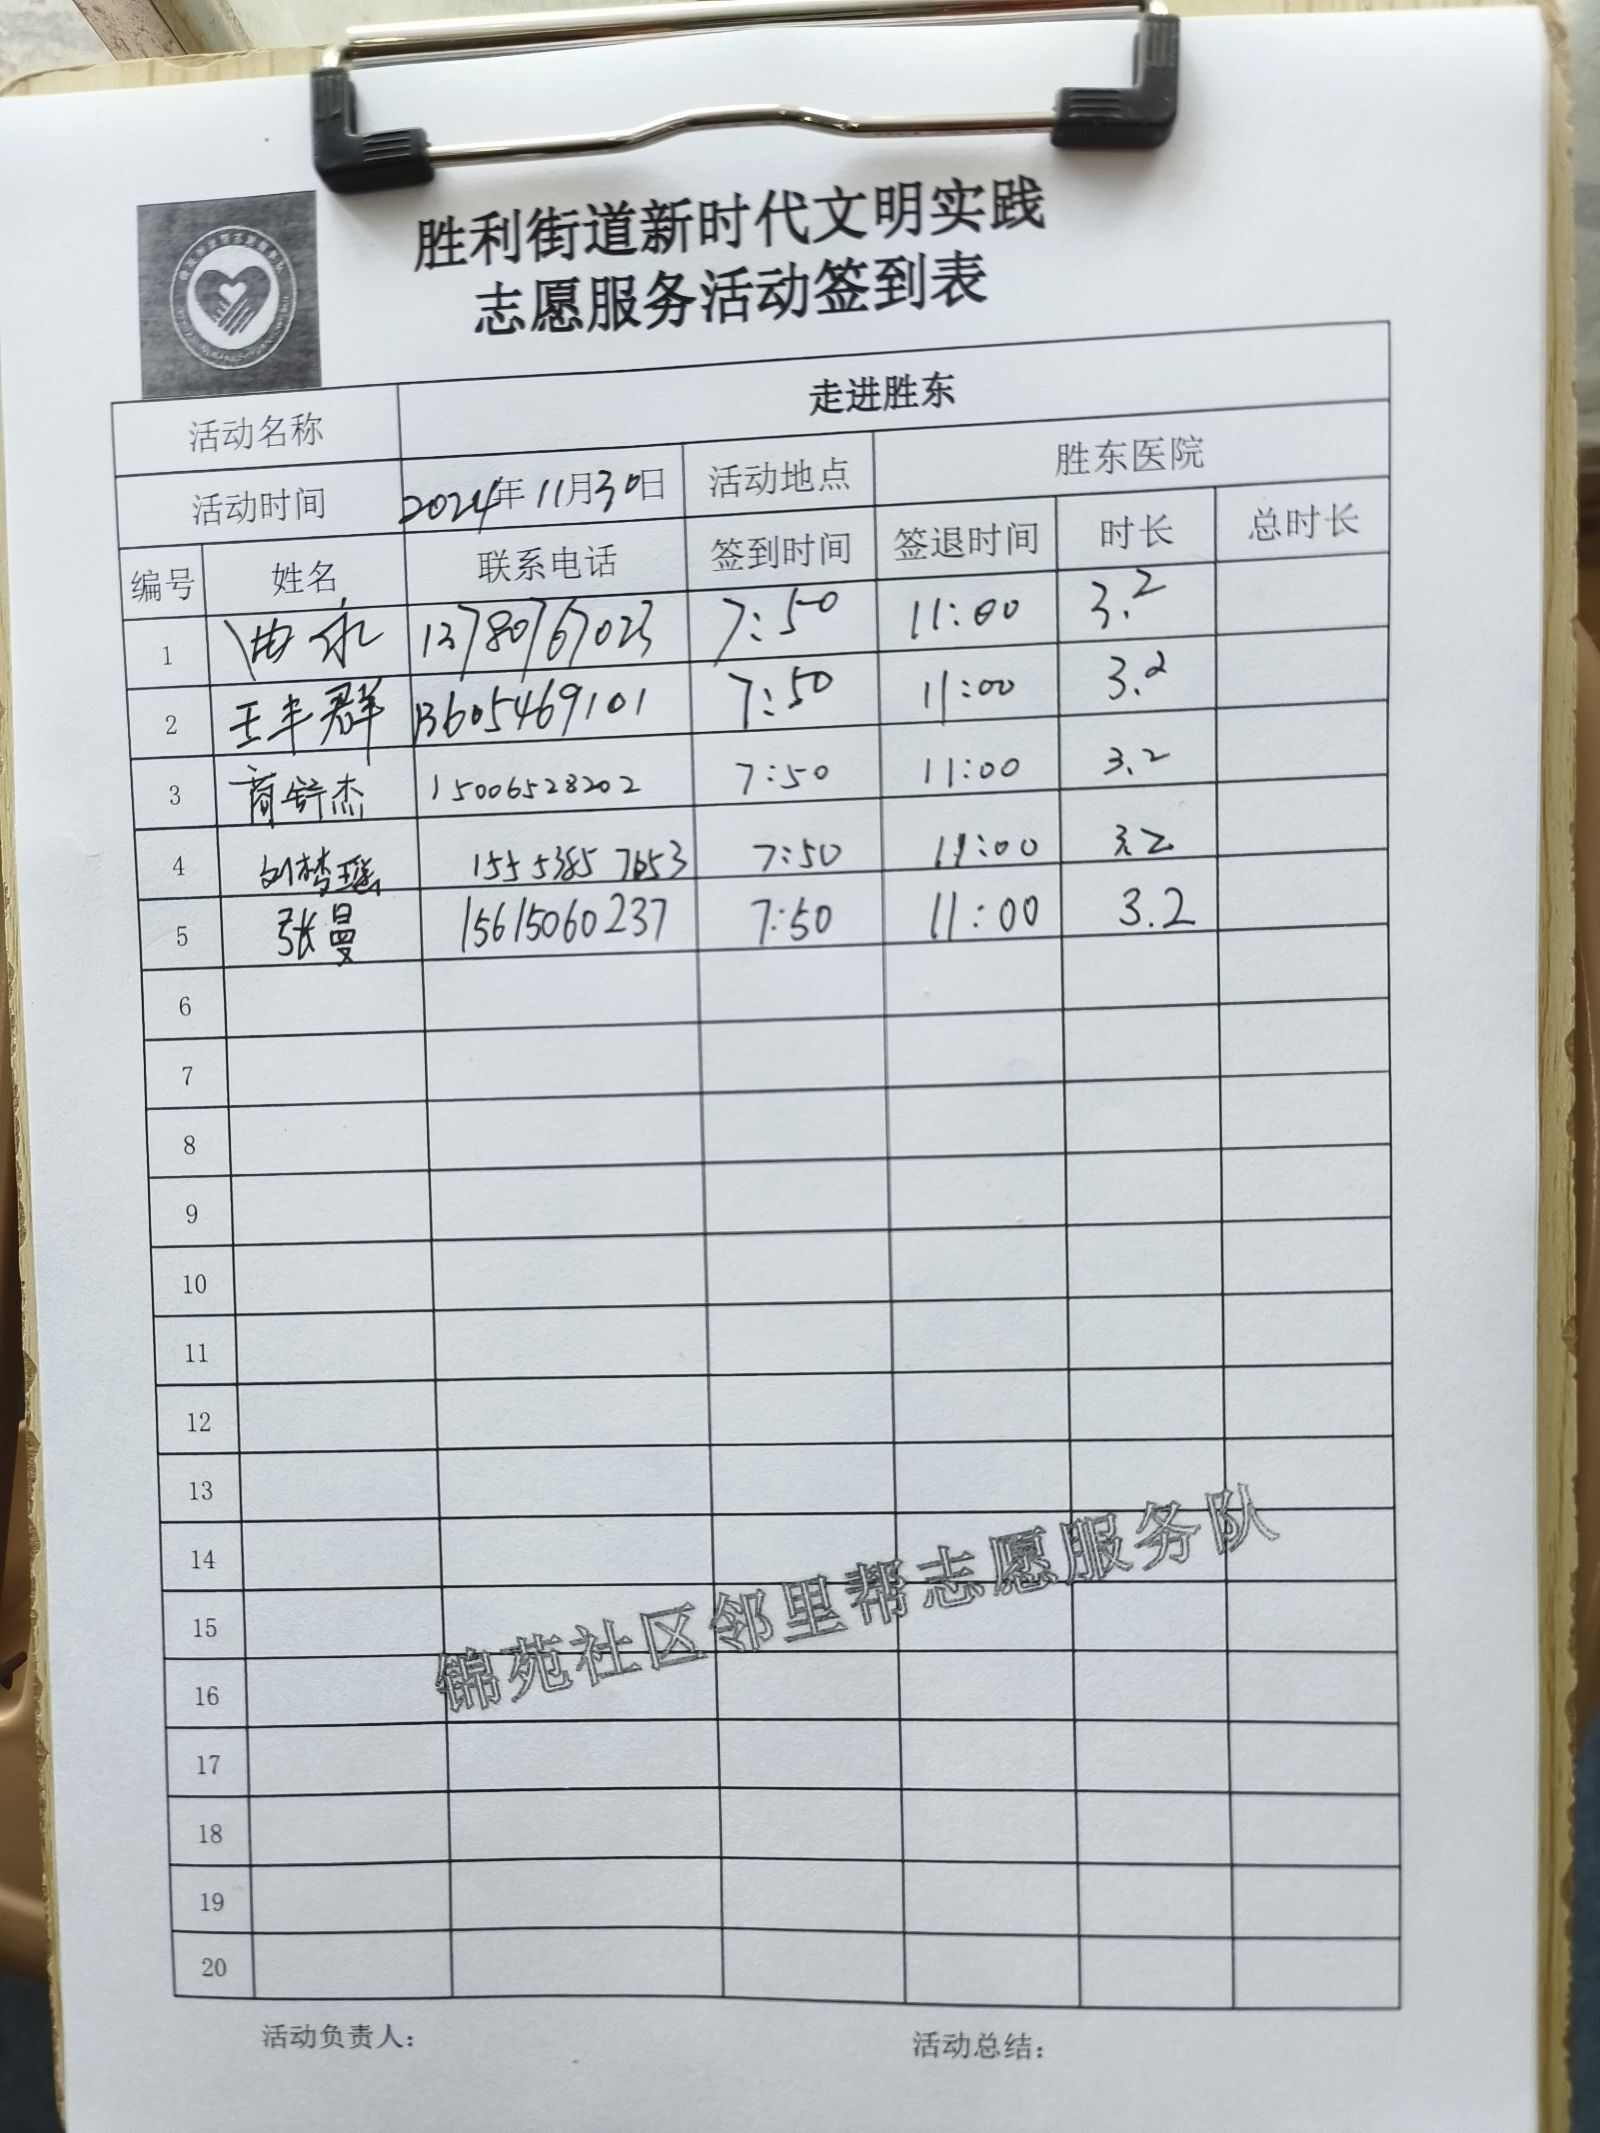 胜利街道新时代文明实践
志愿服务活动签到表
活动名称 走进胜东
活动时间 2024年11月30日 活动地点 胜东医院
编号 姓名 联系电话 签到时间 签退时间 时长 总时长
1 曲永 13780767023 7:50 11:00 3.2
2 王丰群 13605469101 7:50 11:00 3.2
3 商舒杰 15006528202 7:50 11:00 3.2
4 刘梦瑶 15553857653 7:50 11:00 3.2
5 张曼 15615060237 7:50 11:00 3.2
6
7
8
9
10
11
12
13
14
15
16
17
18
19
20
锦苑社区邻里帮志愿服务队
活动负责人： 活动总结：